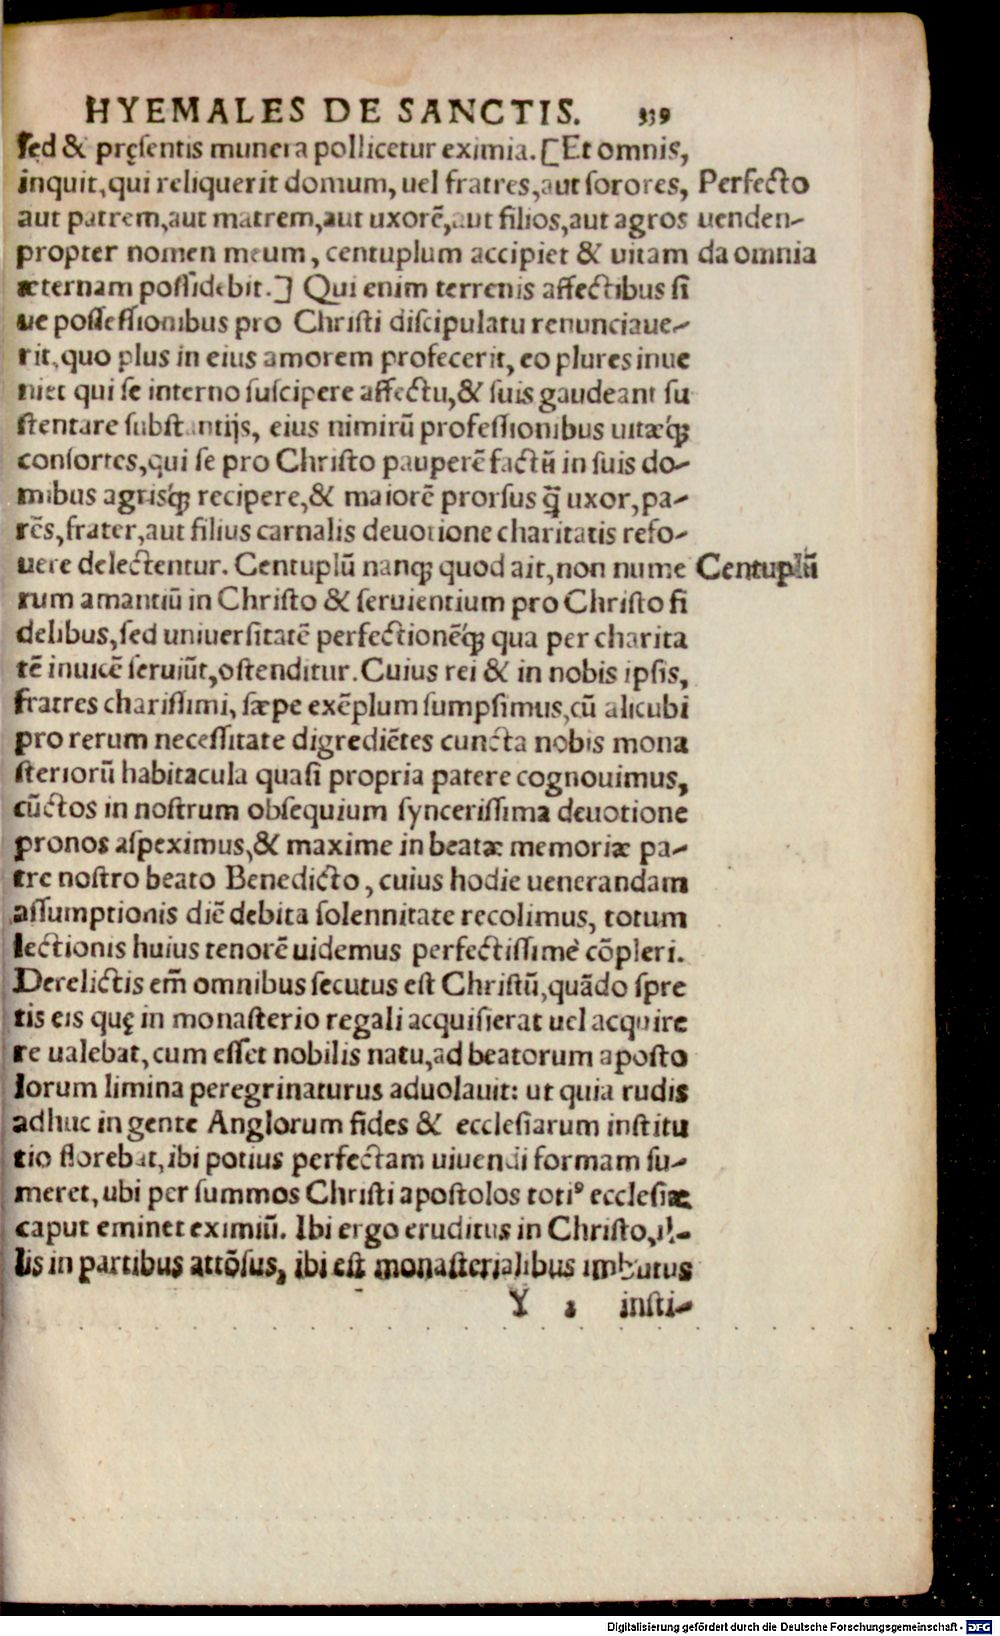 HYEMALES DE SANCTIS. 339
sed & pręsentis munera pollicetur eximia. [Et omnis,
inquit, qui reliquerit domum, uel fratres, aut sorores,
Perfecto
aut patrem, aut matrem, aut uxorē, aut filios, aut agros
uenden-
propter nomen meum, centuplum accipiet & uitam
da omnia
æternam possidebit.] Qui enim terrenis affectibus si
ue possessionibus pro Christi discipulatu renunciaue-
rit, quo plus in eius amorem profecerit, eo plures inue
niet qui se interno suscipere affectu, & suis gaudeant su
stentare substantijs, eius nimirū professionibus uitæq́;
consortes, qui se pro Christo pauperē factū in suis do-
mibus agrisq́; recipere, & maiorē prorsus q̄ uxor, pa-
rēs, frater, aut filius carnalis deuotione charitatis refo-
uere delectentur. Centuplū nanq; quod ait, non nume
Centuplū
rum amantiū in Christo & seruientium pro Christo fi
delibus, sed uniuersitatē perfectionēq́; qua per charita
tē inuicē seruiūt, ostenditur. Cuius rei & in nobis ipsis,
fratres charissimi, sæpe exēplum sumpsimus, cū alicubi
pro rerum necessitate digrediētes cuncta nobis mona
steriorū habitacula quasi propria patere cognouimus,
cūctos in nostrum obsequium syncerissima deuotione
pronos aspeximus, & maxime in beatæ memoriæ pa-
tre nostro beato Benedicto, cuius hodie uenerandam
assumptionis diē debita solennitate recolimus, totum
lectionis huius tenorē uidemus perfectissimè cōpleri.
Derelictis em̄ omnibus secutus est Christū, quādo spre
tis eis quę in monasterio regali acquisierat uel acquire
re ualebat, cum esset nobilis natu, ad beatorum aposto
lorum limina peregrinaturus aduolauit: ut quia rudis
adhuc in gente Anglorum fides & ecclesiarum institu
tio florebat, ibi potius perfectam uiuendi formam su-
meret, ubi per summos Christi apostolos totiꝰ ecclesiæ
caput eminet eximiū. Ibi ergo eruditus in Christo, il-
lis in partibus attōsus, ibi est monasterialibus imbutus
Y 2 insti-
Digitalisierung gefördert durch die Deutsche Forschungsgemeinschaft - DFG